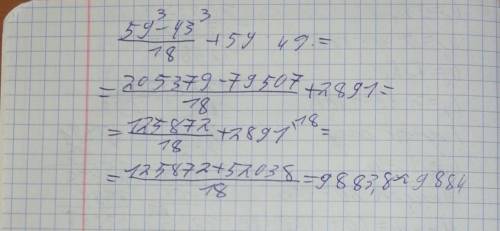 59³-43³/18 + 59 49. =
= 205379-79507/18 + 2891 =
= 125872/18 + 2891\18 =
= 125872+52038/18 = 9883,8≈9884